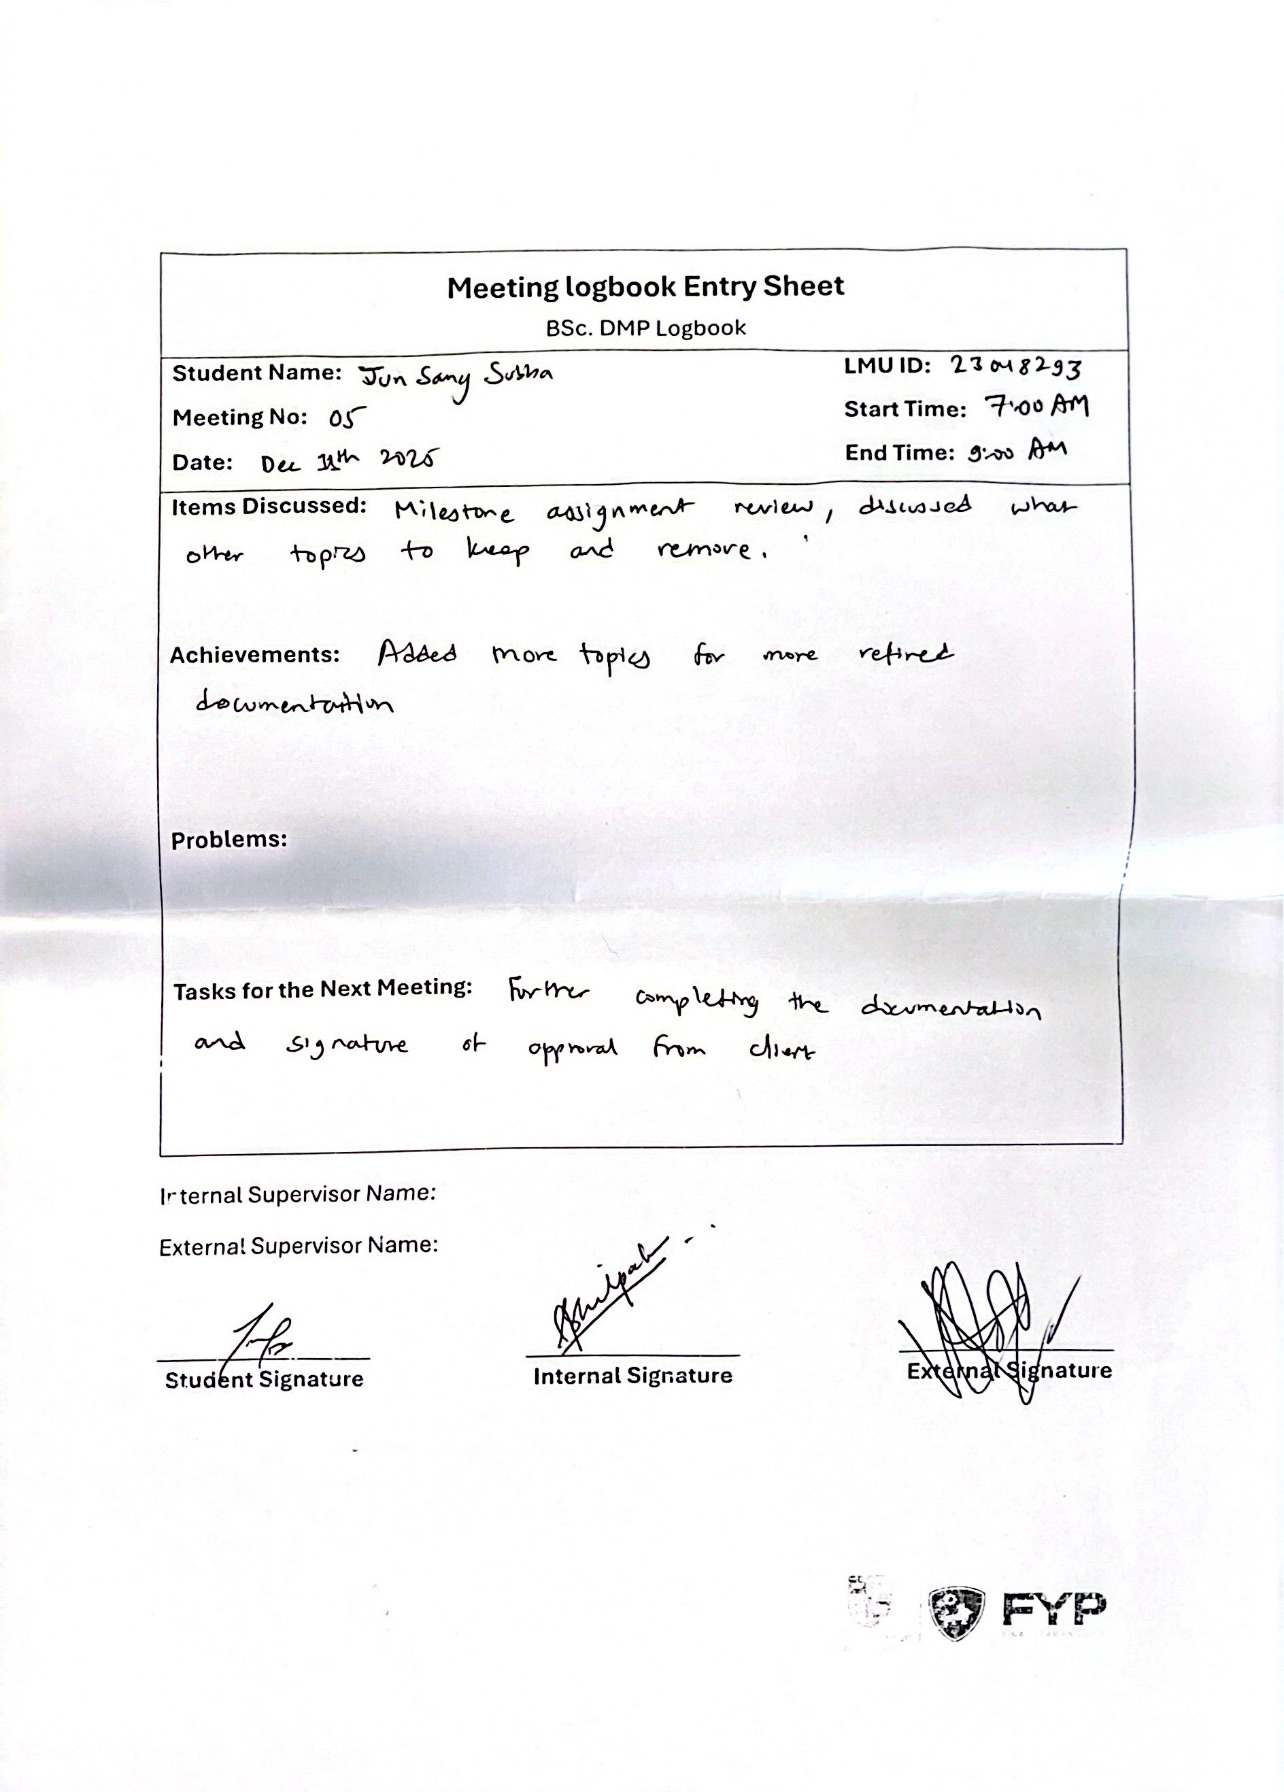 Meeting logbook Entry Sheet
BSc. DMP Logbook
Student Name: Jun Sang Subba
LMU ID: 23048293
Meeting No: 05
Start Time: 7:00 AM
Date: Dec 11th 2025
End Time: 9:00 AM
Items Discussed: Milestone assignment review, discussed what
other topics to keep and remove.
Achievements: Added more topics for more refined
documentation
Problems:
Tasks for the Next Meeting: Further completing the documentation
and signature of approval from client
Internal Supervisor Name:
External Supervisor Name:
Student Signature
Internal Signature
External Signature
FYP